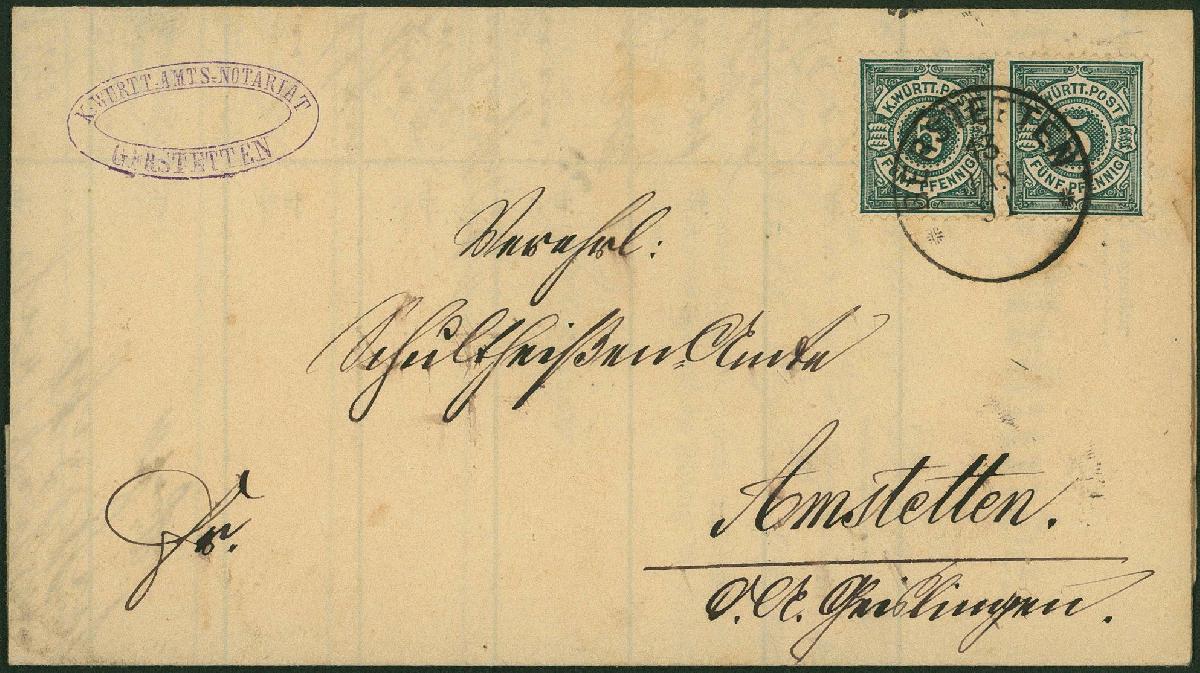 K. WÜRTT. AMTS-NOTARIAT
GERSTETTEN
K. WÜRTT. POST
5
FÜNF PFENNIG
K. WÜRTT. POST
5
FÜNF PFENNIG
GERSTETTEN
91
Verehrl:
Schultheißen-Amte
Amstetten.
Fr.
O.A. Geislingen.